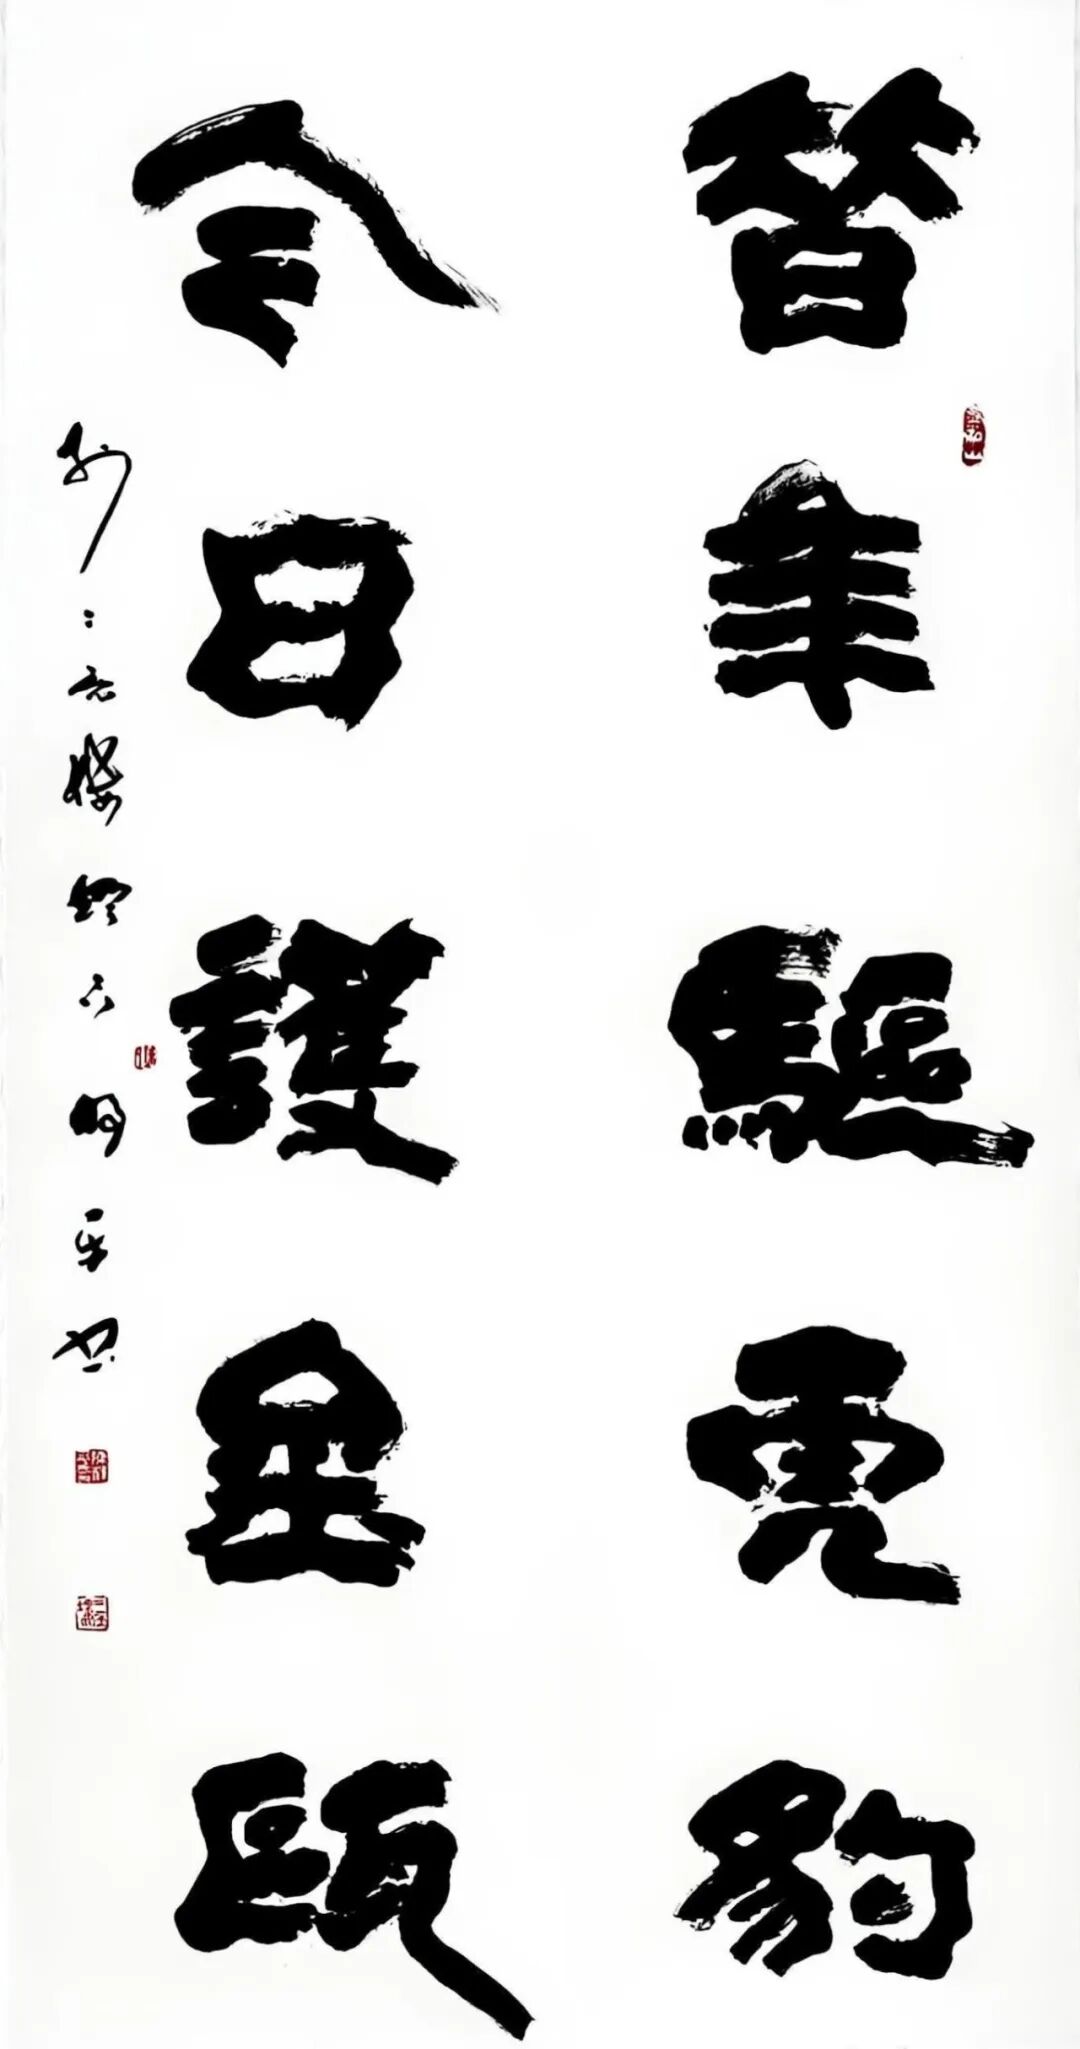 昔年驅虎豹
今日護金甌